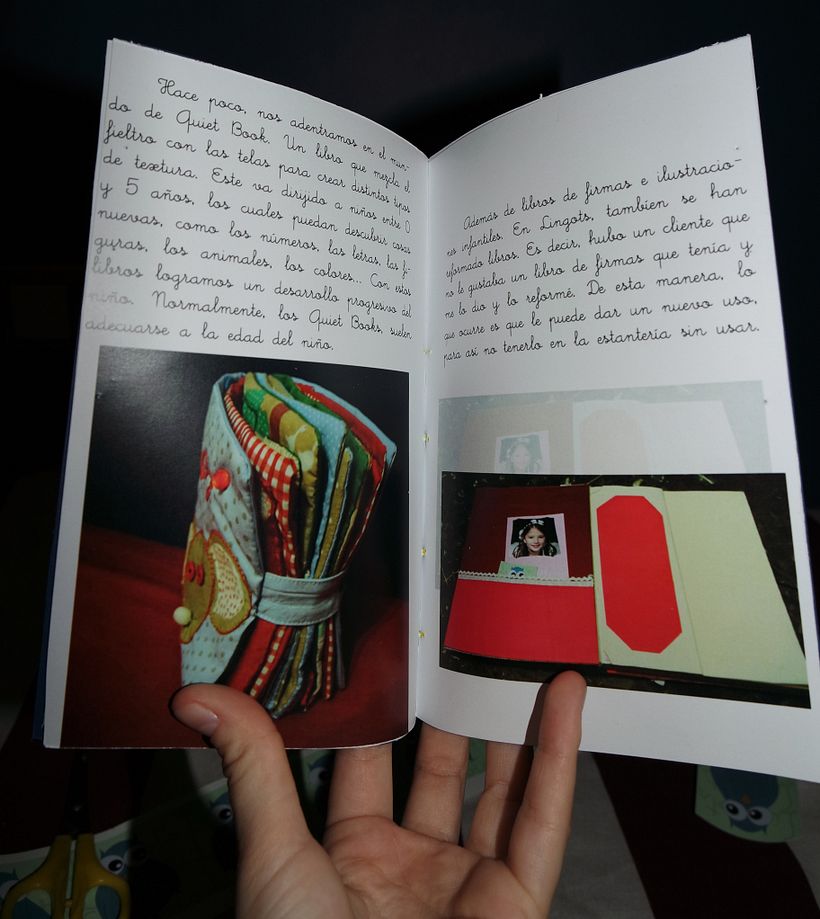 Hace poco, nos adentramos en el mun-
do de Quiet Book. Un libro que mezcla el
fieltro con las telas para crear distintos tipos
de textura. Este va dirijido a niños entre 0
y 5 años, los cuales puedan descubrir cosas
nuevas, como los números, las letras, las fi-
guras, los animales, los colores... Con estos
libros logramos un desarrollo progresivo del
niño. Normalmente, los Quiet Books, suelen
adecuarse a la edad del niño.
Además de libros de firmas e ilustracio-
nes infantiles. En Lingots, tambíen se han
reformado libros. Es decir, hubo un cliente que
no le gustaba un libro de firmas que tenía y
me lo dio y lo reformé. De esta manera, lo
que ocurre es que le puede dar un nuevo uso,
para así no tenerlo en la estantería sin usar.